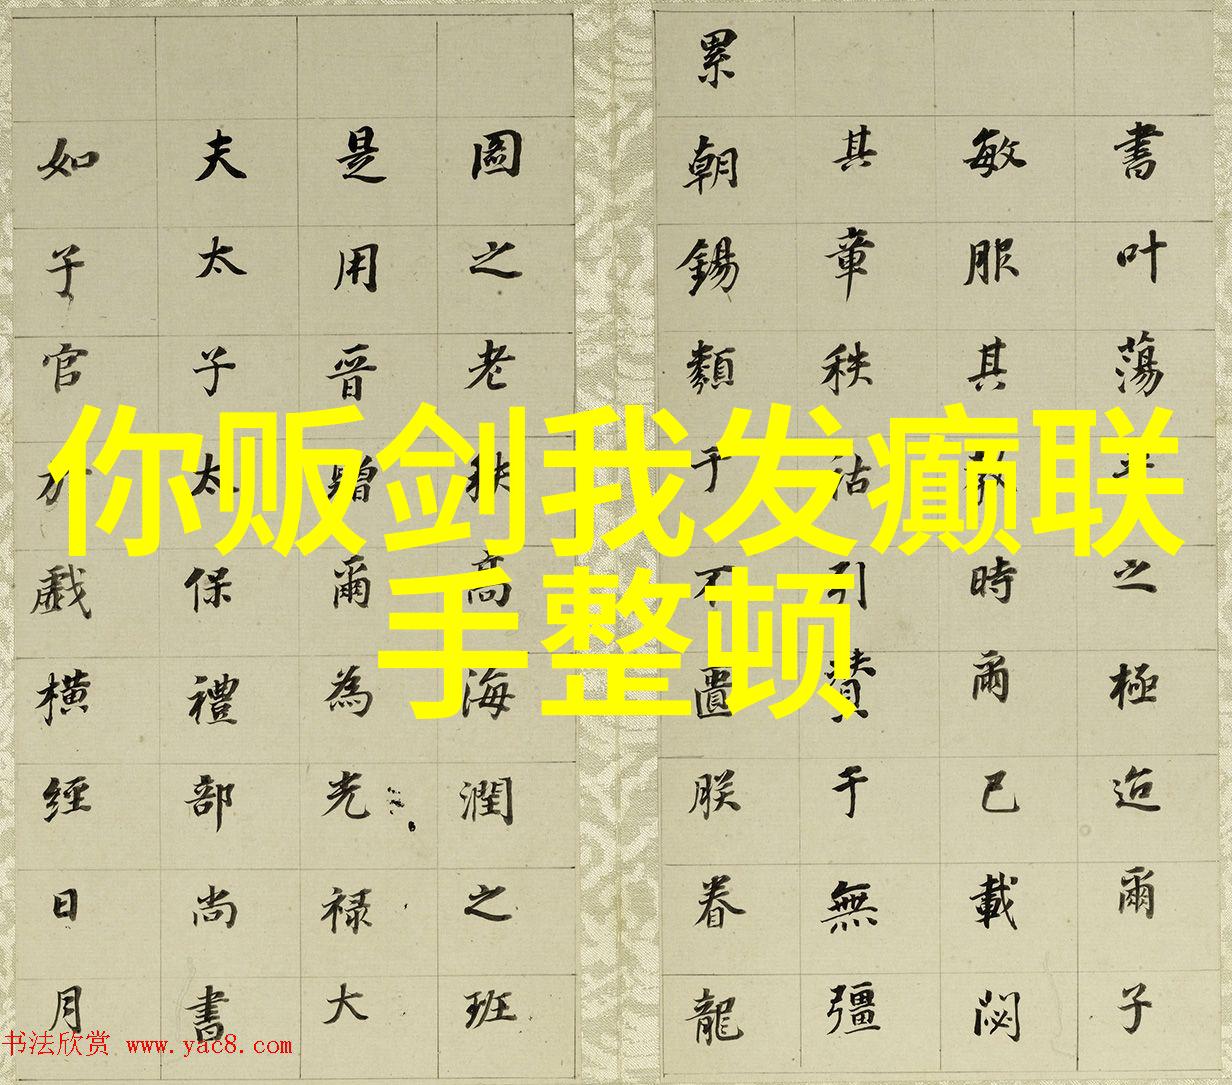 累
書叶蕩平之極迨爾子
敏服其教時爾已載閟
其章秩沽引贊于無彊
朝錫類于不匱朕眷龍
圖之老秩高海潤之班
是用晋贈爾為光禄大
夫太子太保禮部尚書
如子官於戲橫經日月
你贩剑我发癫联
手整顿
书法欣赏 www.yac8.com